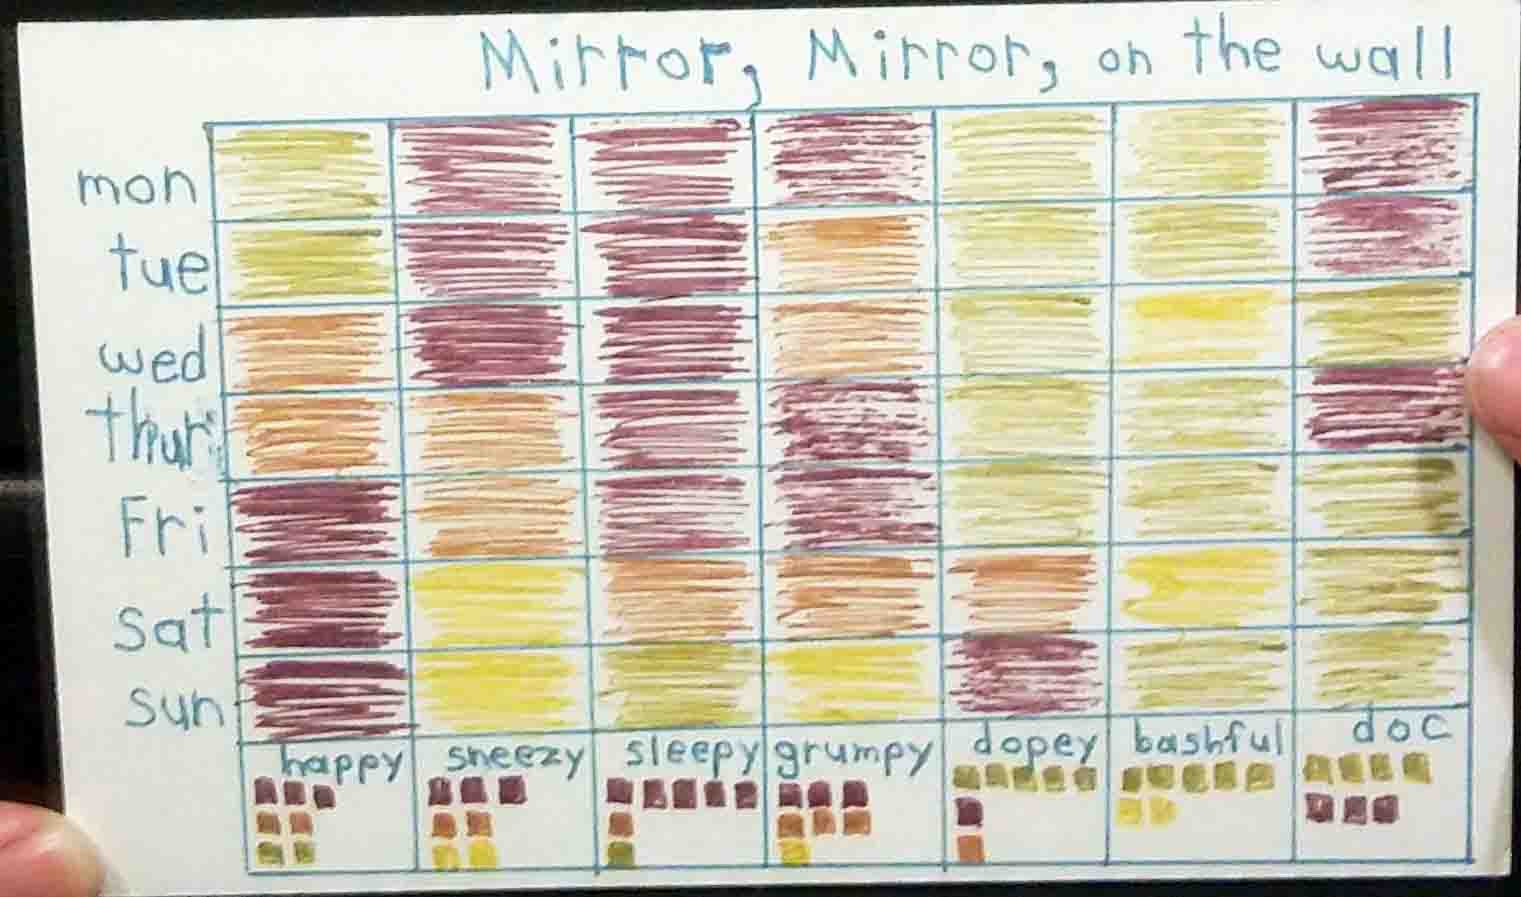 Mirror, Mirror, on the wall
mon
tue
wed
thur
Fri
sat
sun
happy sneezy sleepy grumpy dopey bashful doc